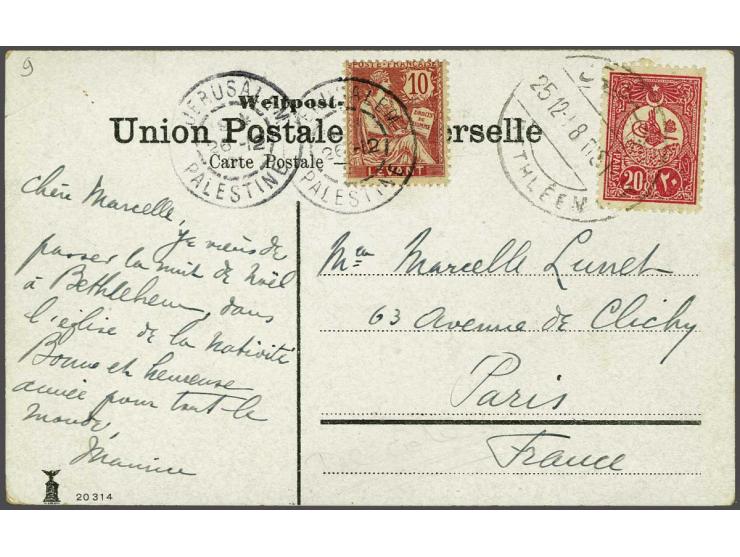 9
Weltpost-
Union Postale erselle
Carte Postale
JERUSALEM
PALESTINE
JERUSALEM
PALESTINE
POSTE FRANÇAISE
10
LEVANT
25 12
THLÉEM
20
٢٠
Chère Marcelle,
je viens de
passer la nuit de Noël
à Bethlehem, dans
l'église de la Nativité
Bonne et heureuse
année pour tout le
monde,
Maurice
Marcelle Lunet
63 Avenue de Clichy
Paris
France
20314